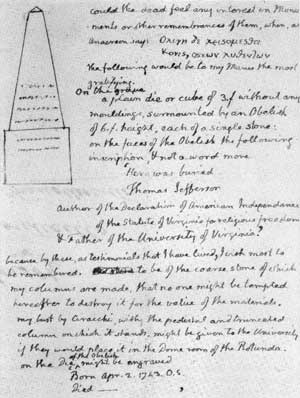 could the dead feel any interest in Monu-
ments or other remembrances of them, when, as
Anacreon says: Ολιγη δε κεισομεσθα
Κονις, οστεων λυθεντων
the following would be to my Manes the most
gratifying.
On the grave
a plain die or cube of 3.f without any
mouldings, surmounted by an Obelisk
of 6.f. height, each of a single stone:
on the faces of the Obelisk the following
inscription, & not a word more
Here was buried
Thomas Jefferson
Author of the Declaration of American Independance
of the Statute of Virginia for religious freedom
& Father of the University of Virginia.
because by these, as testimonials that I have lived, I wish most to
be remembered. to be of the coarse stone of which
my columns are made, that no one might be tempted
hereafter to destroy it for the value of the materials.
my bust by Ciracchi, with the pedestal and truncated
column on which it stands, might be given to the University
if they would place it in the Dome room of the Rotunda.
on the Die of the Obelisk might be engraved
Born Apr. 2. 1743. O.S.
Died